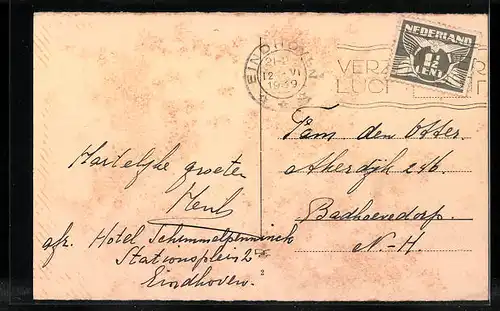 NEDERLAND
1½
CENT
EINDHOVEN
21-
12 VI
1939
VERZ
LUCH
Fam den Otter.
Akerdijk 246.
Badhoevedorp.
N-H.
Hartelijke groeten
Henk
afz. Hotel Schimmelpenninck
Stationsplein 2
Eindhoven.
2